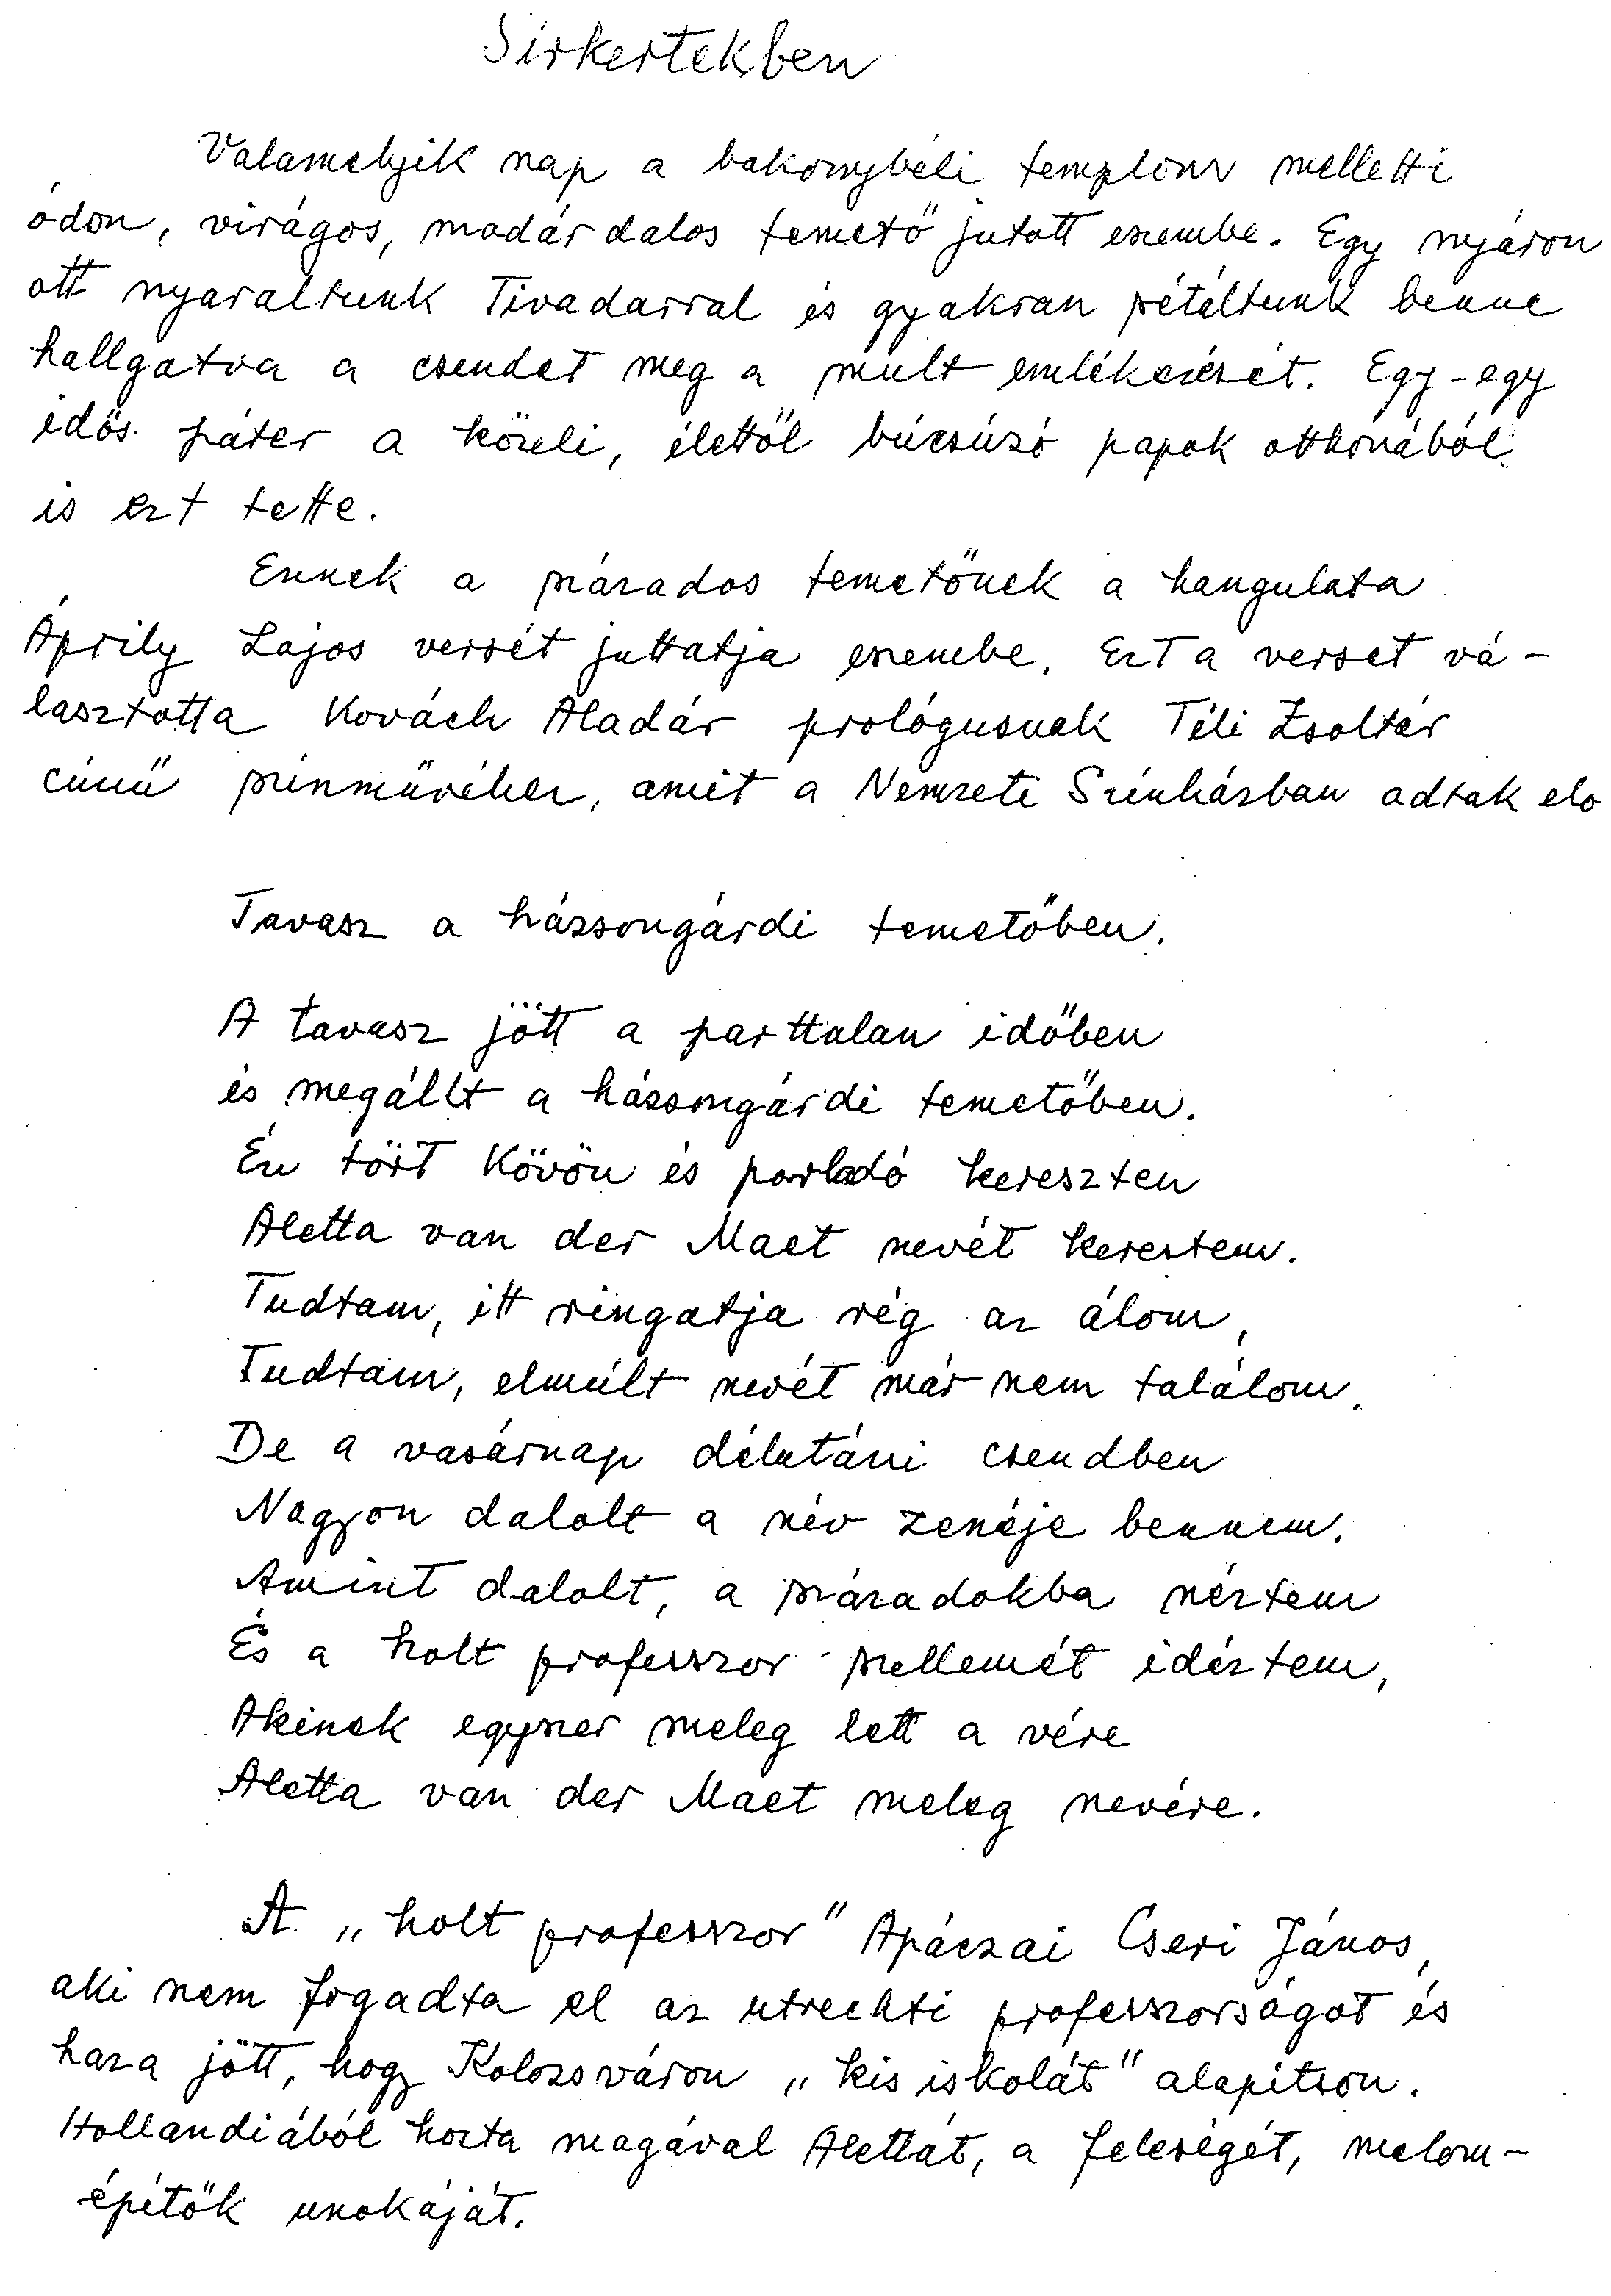 Sírkertekben
Valamelyik nap a bakonybéli templom melletti
ódon, virágos, madárdalos temető jutott eszembe. Egy nyáron
ott nyaraltunk Tivadarral és gyakran sétáltunk benne
hallgatva a csendet meg a mult emlékezését. Egy-egy
idős páter a közeli, élettől búcsúzó papok otthonából
is ezt tette.
Ennek a százados temetőnek a hangulata
Áprily Lajos versét juttatja eszembe. Ezt a verset vá-
lasztotta Kovách Aladár prológusnak Téli Zsoltár
című színművéhez, amit a Nemzeti Színházban adtak elo
Tavasz a házsongárdi temetőben.
A tavasz jött a parttalan időben
és megállt a házsongárdi temetőben.
Én tört kövön és porladó kereszten
Aletta van der Maet nevét kerestem.
Tudtam, itt ringatja rég az álom,
Tudtam, elmúlt nevét már nem találom.
De a vasárnap délutáni csendben
Nagyon dalolt a név zenéje bennem.
Amint dalolt, a századokba néztem
És a holt professzor szellemét idéztem,
Akinek egyszer meleg lett a vére
Aletta van der Maet meleg nevére.
A „holt professzor" Apáczai Cseri János,
aki nem fogadta el az utrechti professzorságot és
haza jött, hogy Kolozsváron „kis iskolát" alapítson.
Hollandiából hozta magával Alettát, a feleségét, malom-
építők unokáját.